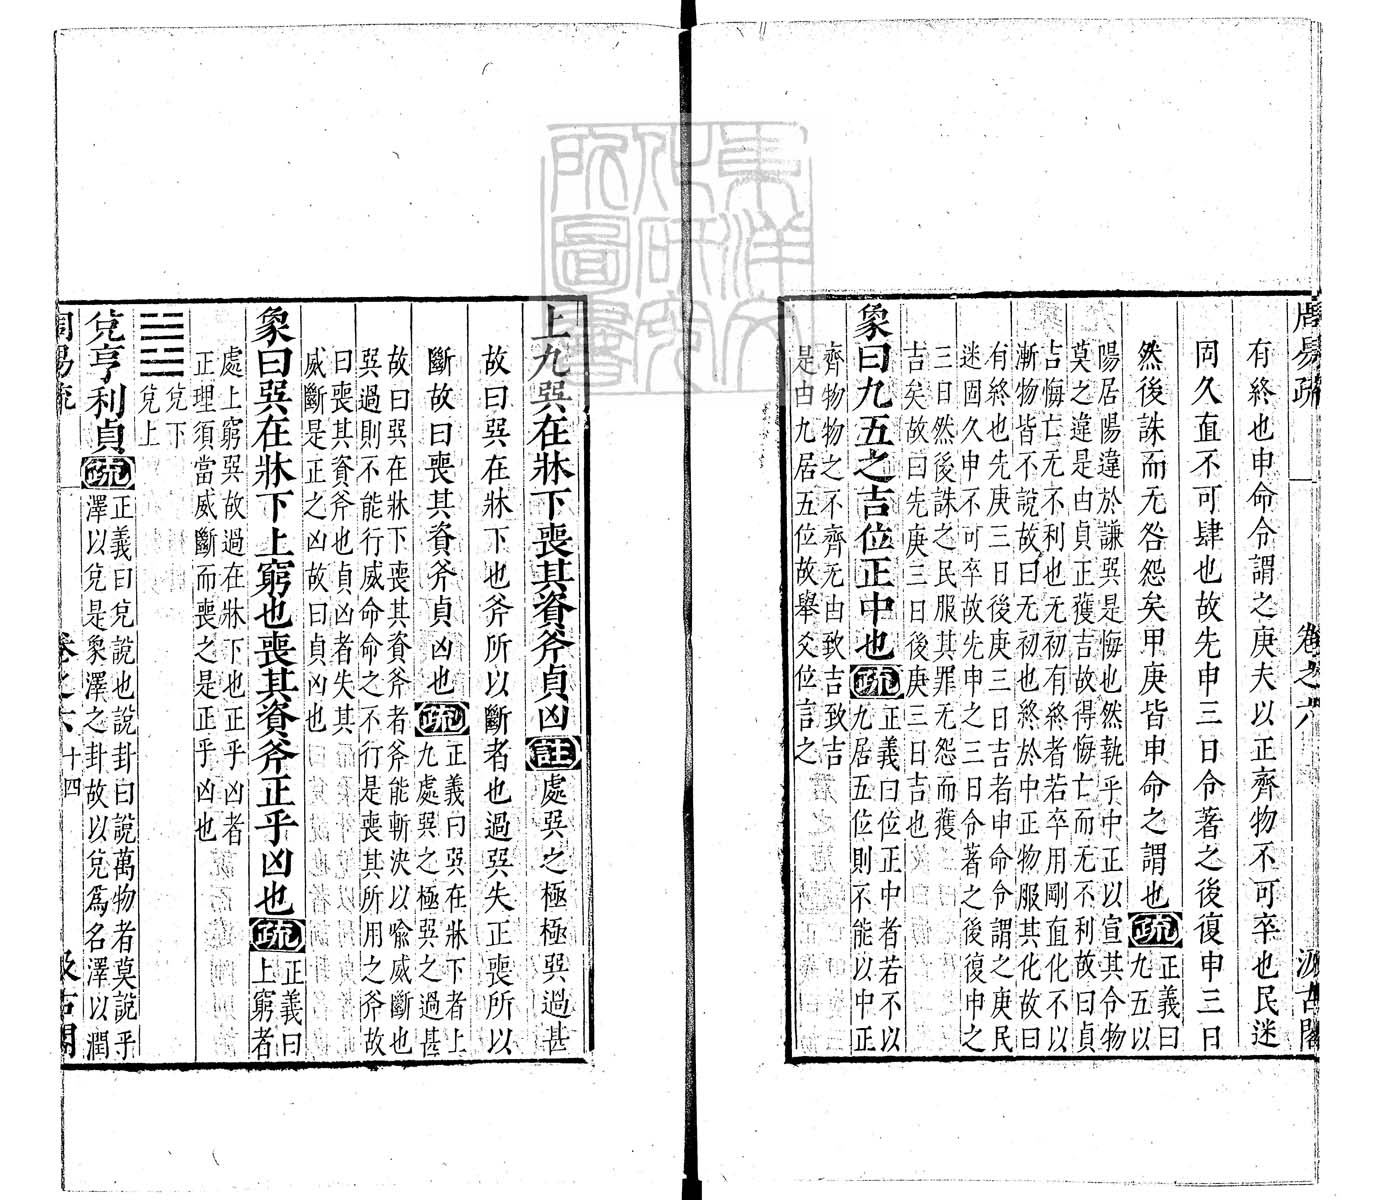 周易疏　卷之六　汲古閣
有終也申命令謂之庚夫以正齊物不可卒也民迷
固久直不可肆也故先申三日令著之後復申三日
然後誅而无咎怨矣甲庚皆申命之謂也疏正義曰
九五以
陽居陽違於謙巽是悔也然執乎中正以宣其令物
莫之違是由貞正獲吉故得悔亡而无不利故曰貞
吉悔亡无不利也无初有終者若卒用剛直化不以
漸物皆不說故曰无初也終於中正物服其化故曰
有終也先庚三日後庚三日吉者申命令謂之庚民
迷固久申不可卒故先申之三日令著之後復申之
三日然後誅之民服其罪无怨而獲
吉矣故曰先庚三日後庚三日吉也
象曰九五之吉位正中也疏正義曰位正中者若不以
九居五位則不能以中正
齊物物之不齊无由致吉致吉
是由九居五位故舉爻位言之
上九巽在牀下喪其資斧貞凶註處巽之極極巽過甚
故曰巽在牀下也斧所以斷者也過巽失正喪所以
斷故曰喪其資斧貞凶也疏正義曰巽在牀下者上
九處巽之極巽之過甚
故曰巽在牀下喪其資斧者斧能斬決以喻威斷也
巽過則不能行威命命之不行是喪其所用之斧故
曰喪其資斧也貞凶者失其
威斷是正之凶故曰貞凶也
象曰巽在牀下上窮也喪其資斧正乎凶也疏正義曰
上窮者
處上窮巽故過在牀下也正乎凶者
正理須當威斷而喪之是正乎凶也
䷹兌下
兌上
兌亨利貞疏正義曰兌說也說卦曰說萬物者莫說乎
澤以兌是象澤之卦故以兌爲名澤以潤
周易疏　卷之六　十四　汲古閣
東洋文
化研究
所圖書